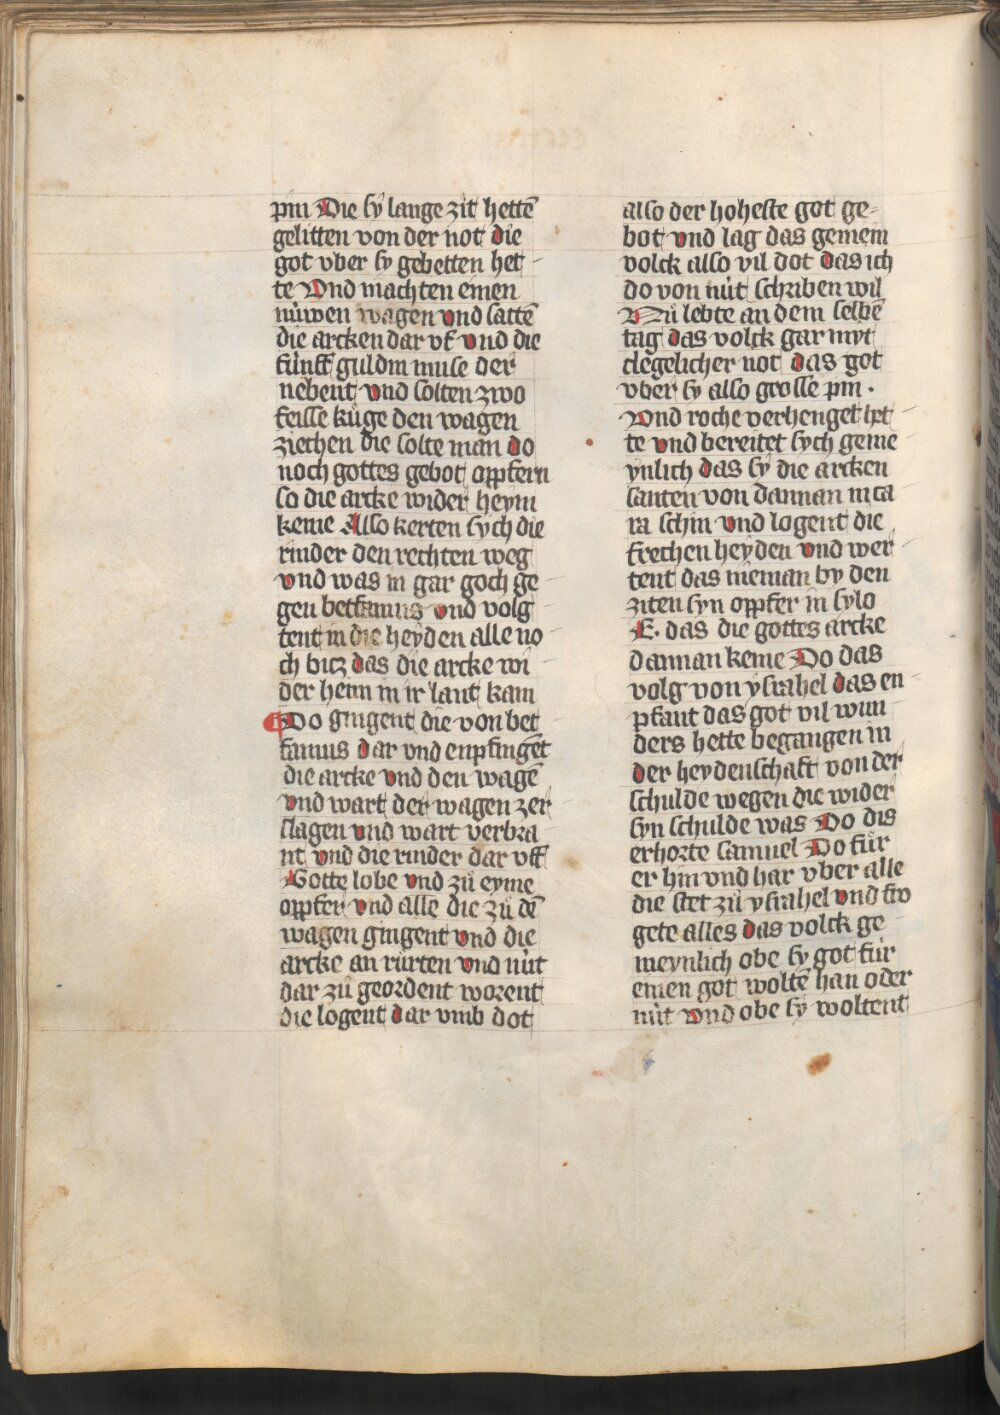 pin Die sy lange zit hettē
gelitten von der not die
got vber sy gebetten het-
te Vnd machten einen
nüwen wagen vnd sattē
die arcken dar vf vnd die
fünff guldin muse der
nebent vnd solten zwo
feisse kůge den wagen
ziechen die solte man do
noch gottes gebot opfern
so die arcke wider heym
keme Also kerten sych die
rinder den rechten weg
vnd was in gar goch ge-
gen betsamus vnd volg-
tent in die heyden alle no-
ch bitz das die arcke wi-
der heim in ir lant kam
Do gingent die von bet
samus dar vnd enpfinget
die arcke vnd den wagē
vnd wart der wagen zer-
slagen vnd wart verbra-
nt vnd die rinder dar vff
Gotte lobe vnd zů eyme
opfer vnd alle die zů dē
wagen gingent vnd die
arcke an rürten vnd nüt
dar zů geordent worent
die logent dar vmb dot
also der hoheste got ge-
bot vnd lag das gemein
volck also vil dot das ich
do von nüt schriben wil
Nů lebte an dem selbē
tag das volck gar myt
clegelicher not das got
vber sy also grosse pin .
Vnd roche verhenget het-
te vnd bereitet sych geme-
ynlich das sy die arcken
santen von dannan in ca
ra schin vnd logent die
frechen heyden vnd wer-
tent das nieman by den
ziten syn opfer in sylo
E. das die gottes arcke
dannan keme Do das
volg von ysrahel das en-
pfant das got vil wun
ders hette begangen in
der heydenschaft von der
schulde wegen die wider
syn schulde was Do dis
erhorte samuel Do fůr
er hin vnd har vber alle
die stet zů ysrahel vnd fro
gete alles das volck ge
meynlich obe sy got für
einen got woltē han oder
nüt vnd obe sy woltent